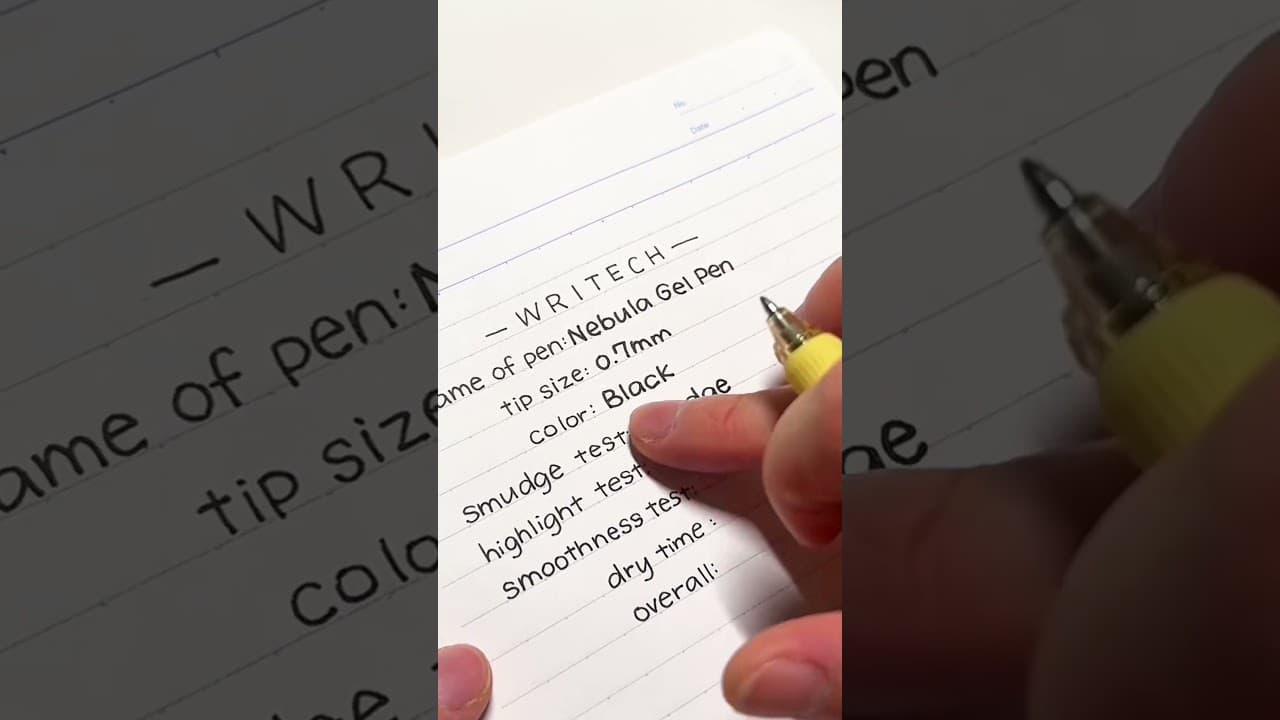 No.
Date
— WRITECH —
ame of pen: Nebula Gel Pen
tip size: 0.7mm
color: Black
smudge test: dge
highlight test:
smoothness test:
dry time :
overall: